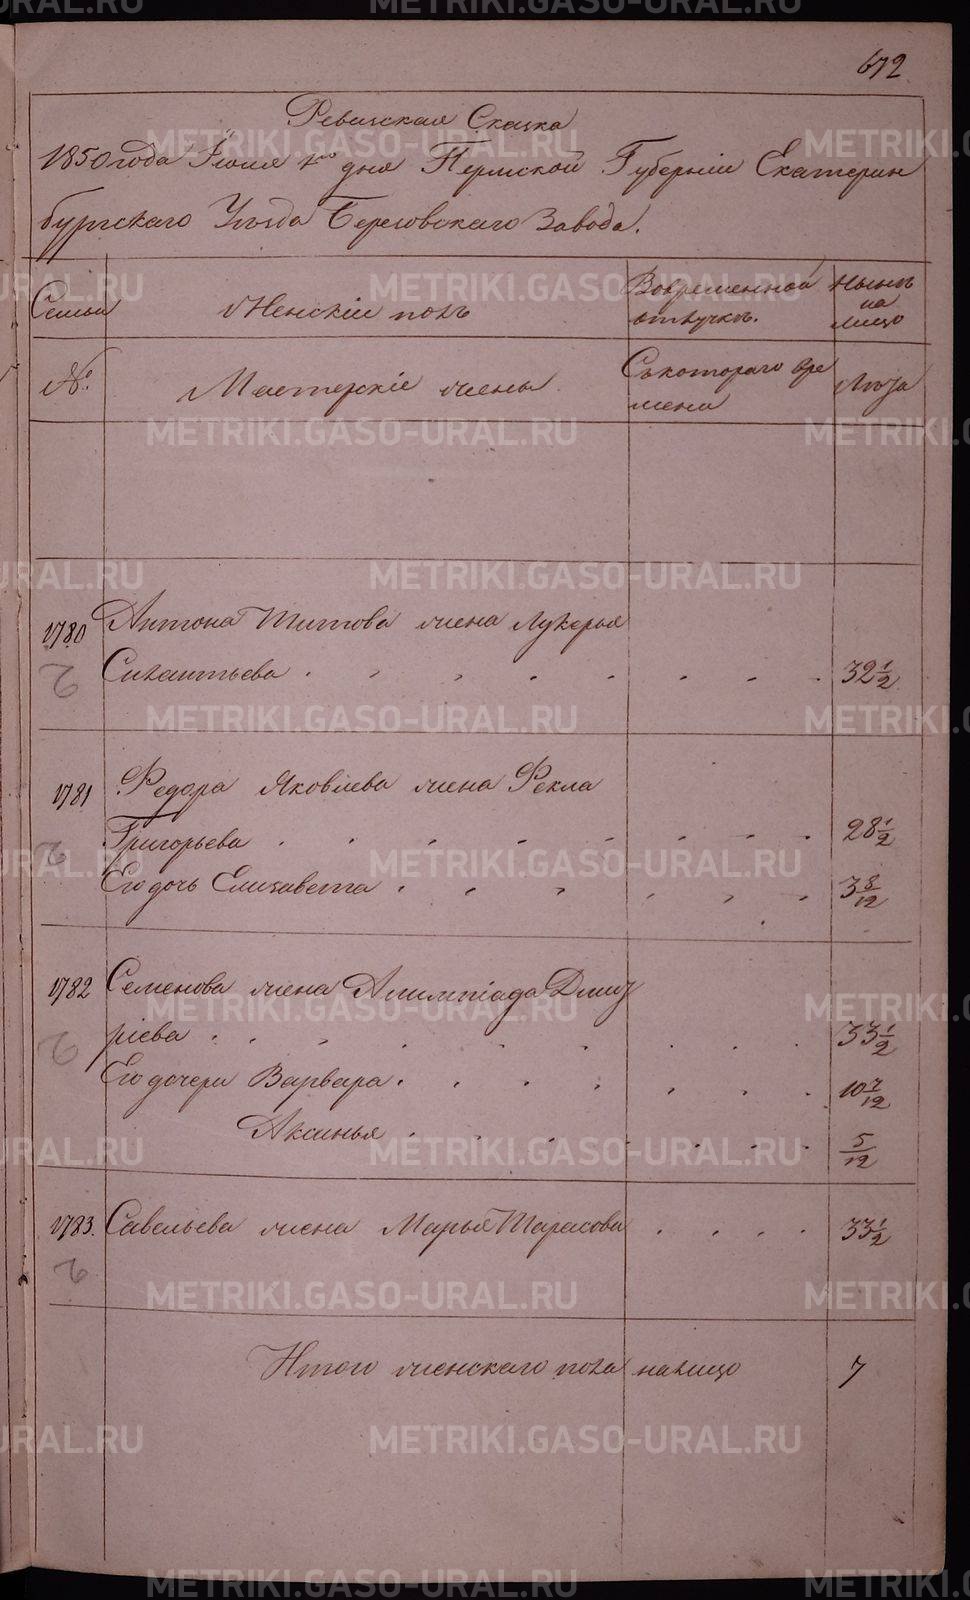 672
Ревизская Сказка
1850 года Іюля 1го дня Пермской Губерніи Екатерин
бургскаго Уѣзда Березовскаго Завода.
Семьи
Женскій полъ
Вовременной
отлучкѣ.
Нынѣ
на
лицо
№.
Мастерскіе жены
Скотораго вре
мени
Лѣта
1780
Антона Титова жена Лукерья
Силантьева 32 1/2
1781
Федора Яковлева жена Фекла
Григорьева 28 1/2
Его дочь Елизавета 3 8/12
1782
Семенова жена Алимпіада Дмит
ріева 33 1/2
Его дочери Варвара 10 7/12
Аксинья 5/12
1783.
Савельева жена Марья Тарасова 33 1/2
Итого женскаго пола налицо 7
METRIKI.GASO-URAL.RU